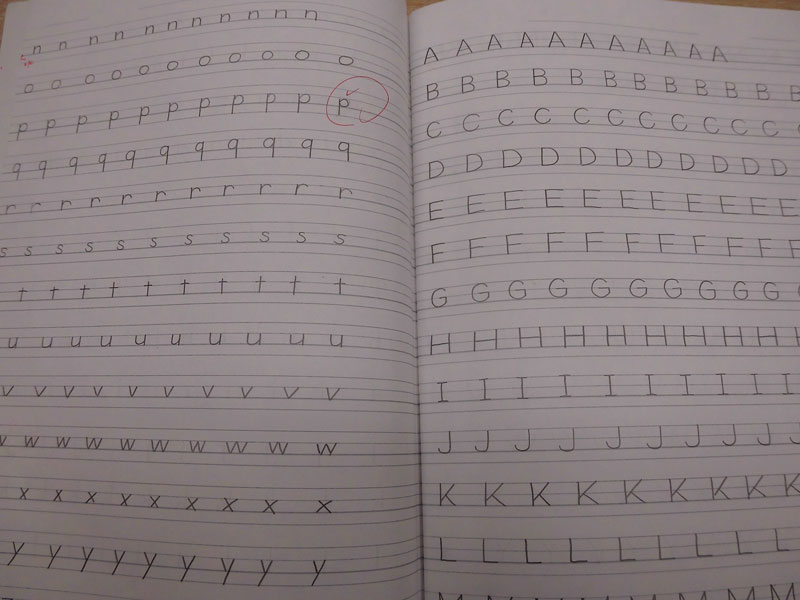 n n n n n n n n n n n n
o o o o o o o o o o o
p p p p p p p p p p p
q q q q q q q q q q q
r r r r r r r r r r r
s s s s s s s s s s s
t t t t t t t t t t
u u u u u u u u u u
v v v v v v v v v v
w w w w w w w w w w
x x x x x x x x x
y y y y y y y y y
A A A A A A A A A A A
B B B B B B B B B B B B
C C C C C C C C C C C C
D D D D D D D D D D D
E E E E E E E E E E E
F F F F F F F F F F F
G G G G G G G G G G
H H H H H H H H H H
I I I I I I I I I I
J J J J J J J J J J
K K K K K K K K K
L L L L L L L L L